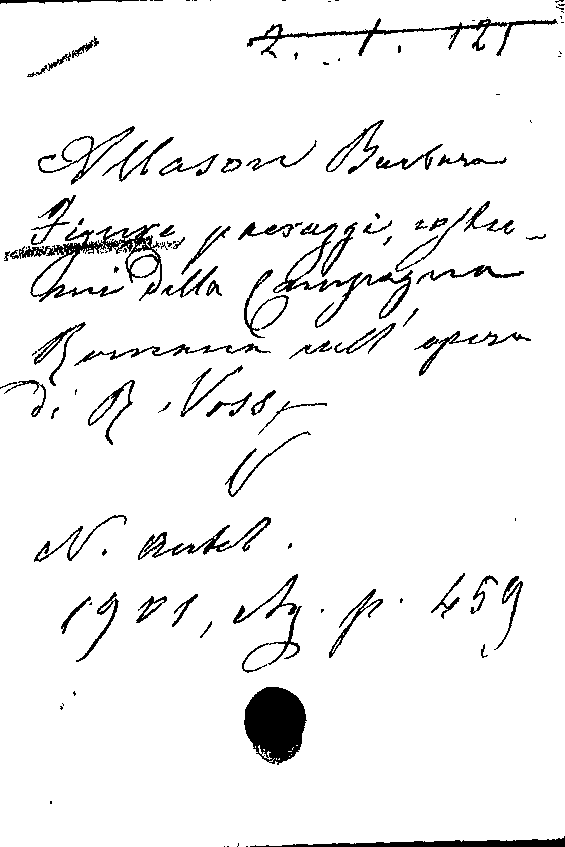 2. 1. 121
Allason Barbara
Figure, paesaggi, costu-
mi della Campagna
Romana nell'opera
di R. Voss,
N. Antol.
1901, Ag. p. 459